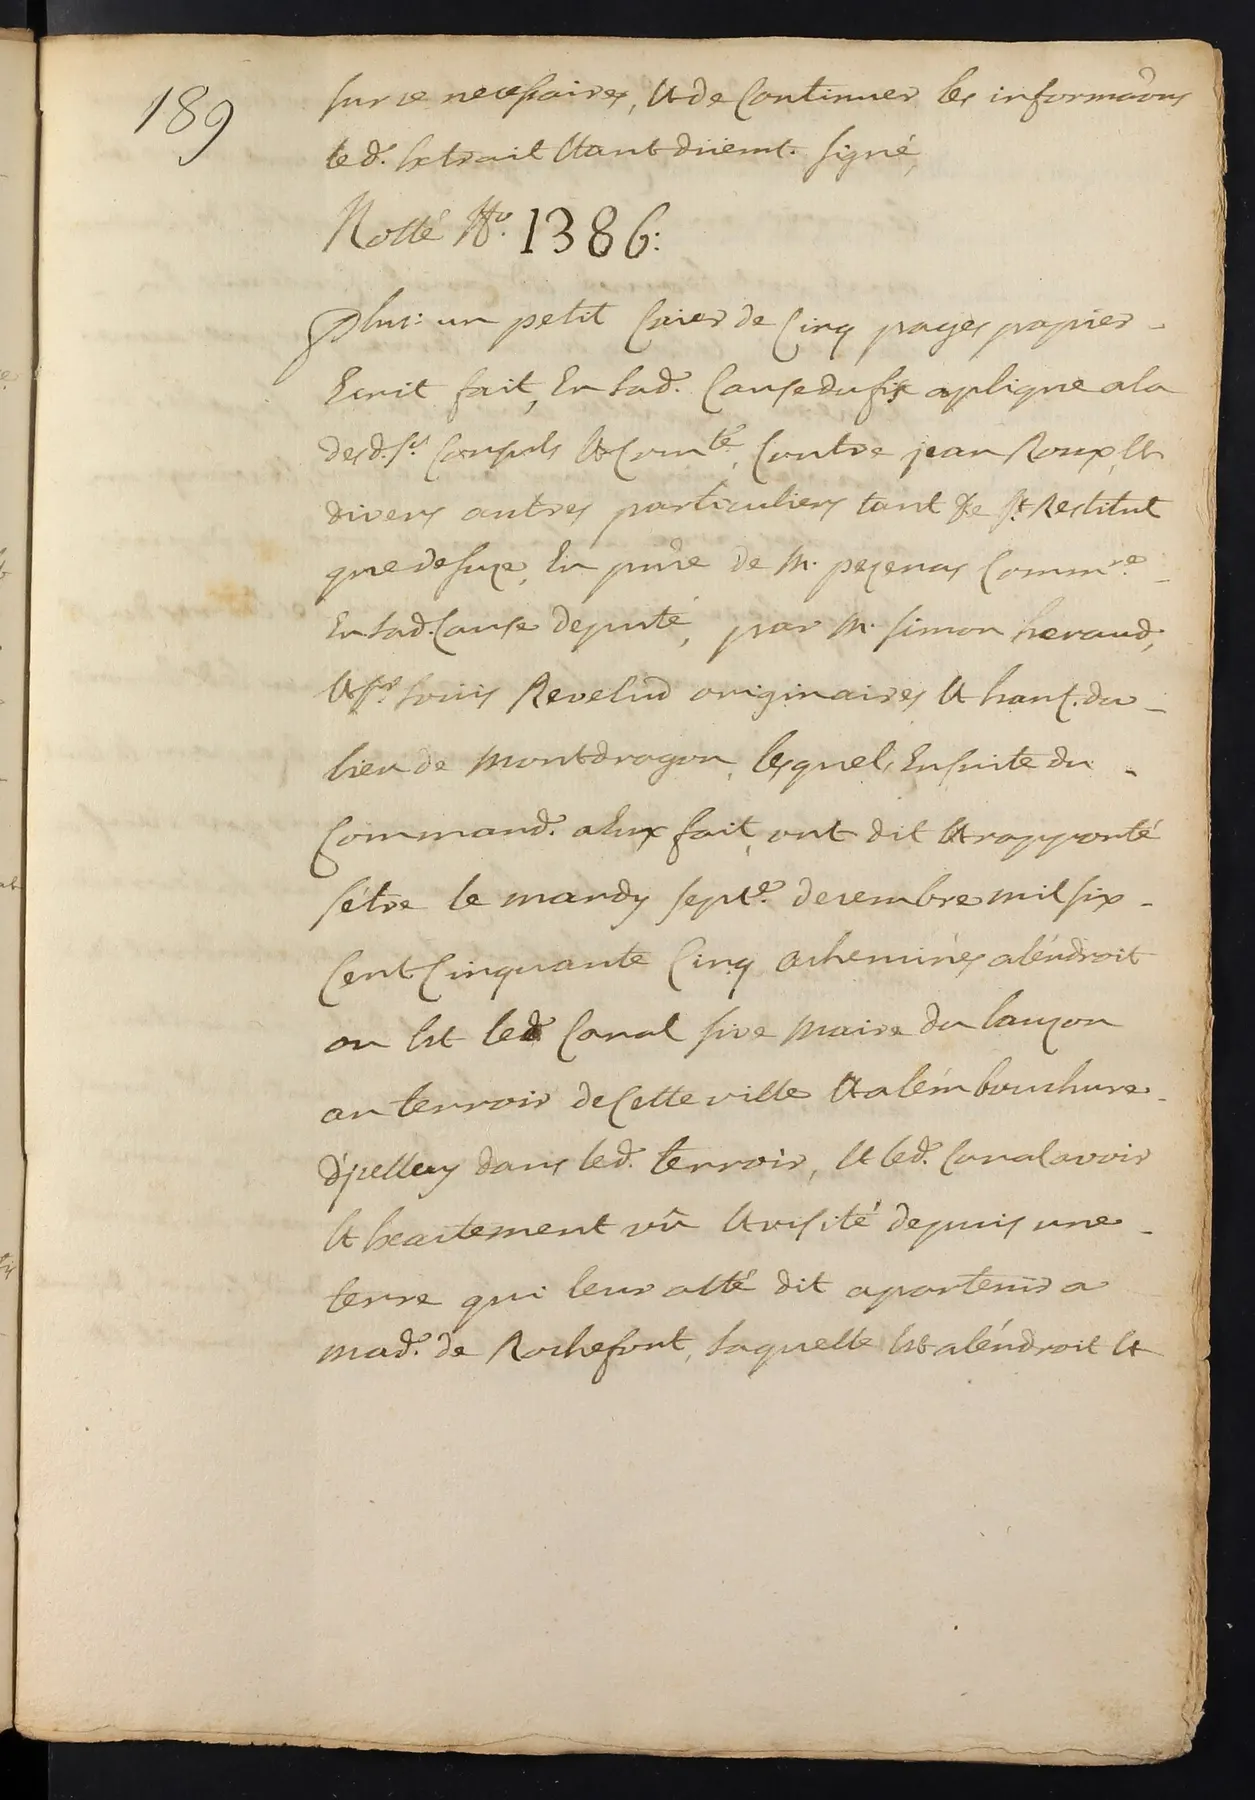 189
sur ce necessaires, et de Continuer les informaõns
led. extrait etant düemt. signé,
Notté No. 1386:
Plus: un petit Caier de Cinq pages papier
Ecrit fait, En lad. Cause du fix apligne a la
desd. srs Consuls et Comté, Contre jean Roux, et
divers autres particuliers tant de st Restitut
que de suze, En pnce de Mr. pezenas Commre
En lad. Cause deputé, par Mr. simon heraud,
et sr. loüis Revelud originaires et hant. du
lieu de Montdragon, lesquels Ensuite du
Command. a eux fait, ont dit et rapporté
s'étre le mardy septe. decembre mil six
Cent Cinquante Cinq acheminés a léndroit
ou Est led. Canal sive Maire du lauzon
au terroir de Cette ville et a lém bouchure
dans led. terroir, et led. Canal avoir
et Exactement vû et visité depuis une
terre qui leur a été dit apartenir a
mad. de Rochefort, laquelle Est a léndroit et